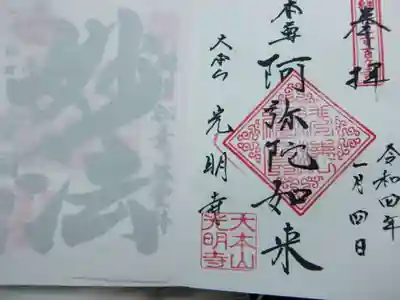 奉拝
令和四年
一月四日
本尊
阿弥陀如来
大本山
光明寺
大本山
光明寺
妙法